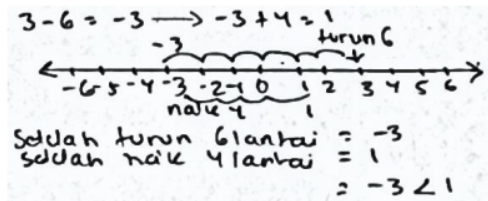 3 - 6 = -3 → -3 + 4 = 1
-3 turun 6
-6 -5 -4 -3 -2 -1 0 1 2 3 4 5 6
naik 4 1
Setelah turun 6 lantai = -3
setelah naik 4 lantai = 1
= -3 < 1